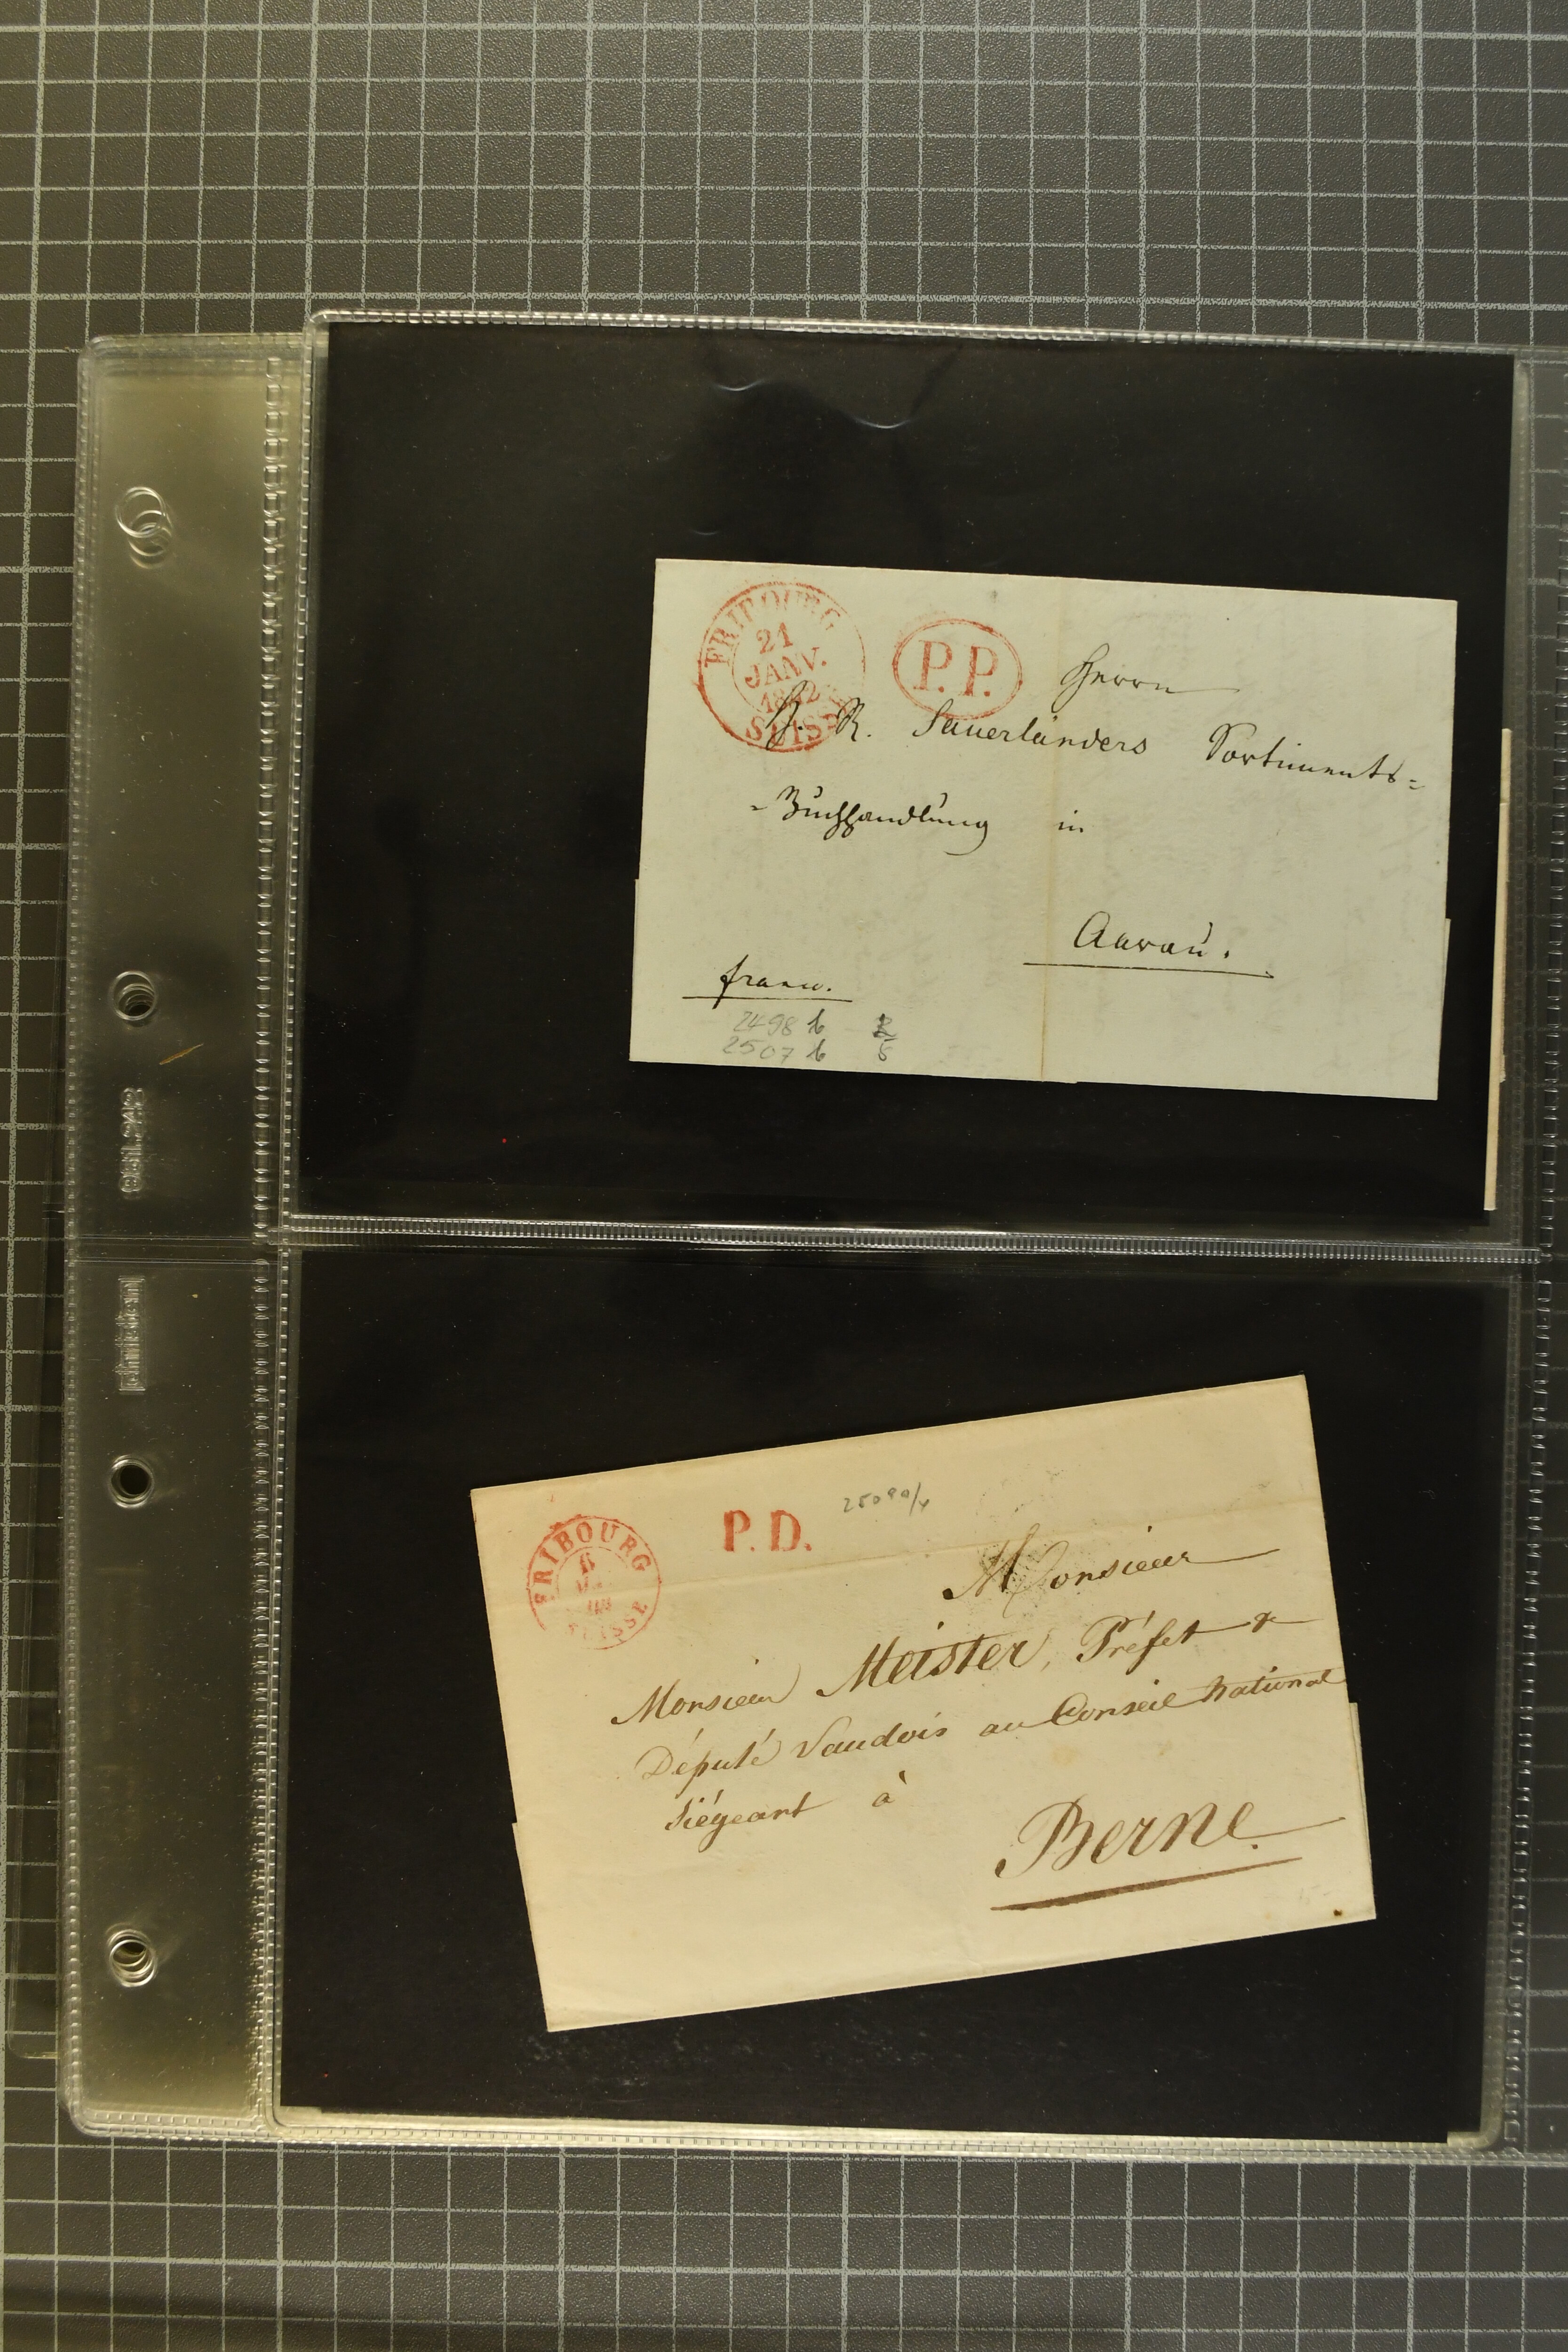 FRIBOURG
21
JANV.
1842
SUISSE
P.P.
Herrn
H. R. Sauerländers Sortiments=
=Buchhandlung in
Aarau.
franco.
2498 b
2507 b 8
FRIBOURG
6
SUISSE
P.D.
Monsieur
Monsieur Meister, Préfet &
Député Vaudois au Conseil National
Siégeant à
Berne.